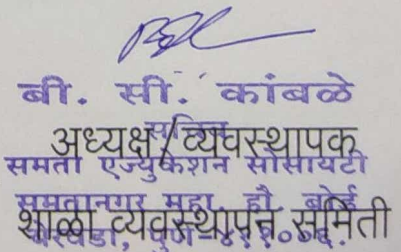 बी. सी. कांबळे
सचिव
अध्यक्ष/व्यवस्थापक
समता एज्युकेशन सोसायटी
समतानगर महा. हौ. बोर्ड
शाळा व्यवस्थापन समिती
येरवडा, पुणे-४११००६